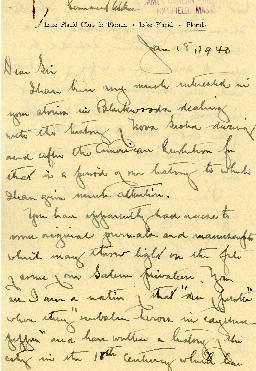 Lake Placid Club in Florida · Lake Placid · Florida
Jan 18, 1940
Dear Sir
I have been very much interested in
your stories in Blackwoods dealing
with the history of Nova Scotia during
and after the American Revolution for
that is a period of our history to which
I have given much attention.
You have apparently had access to
some original journals and manuscripts
which may throw light on the life
of some of our Salem privateers. You
see I am a native of that "den of
when they
and have written a history of the
city in the 18th Century which has